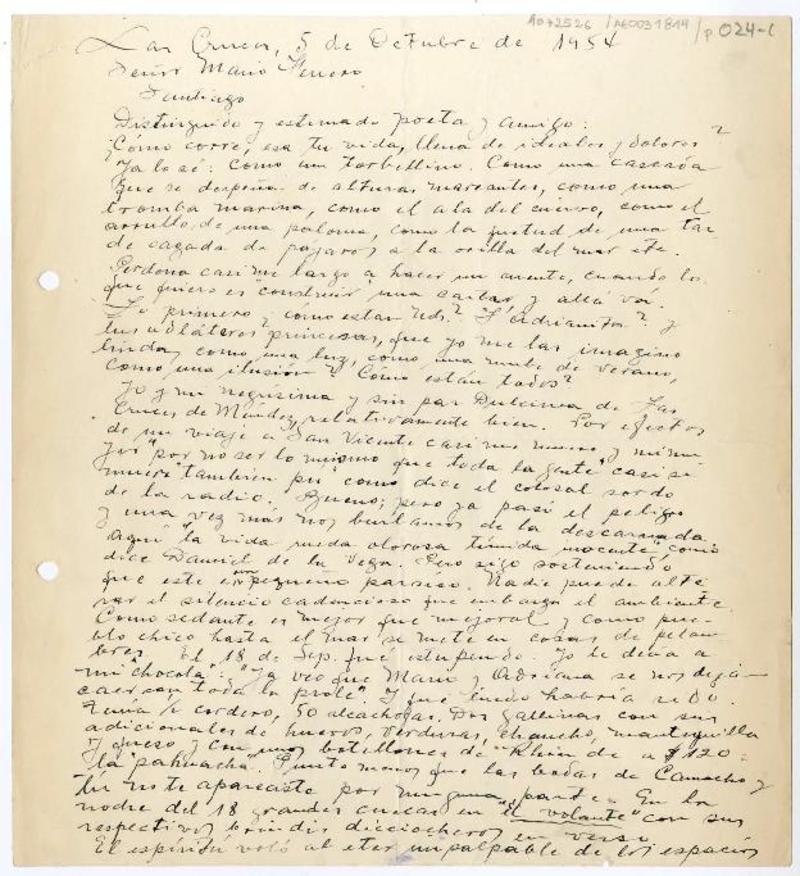 A072526 / A60031814 / p 024-1
Las Cruces, 5 de Octubre de 1954
Señor Mario Ferrero
Santiago
Distinguido y estimado poeta y amigo:
¿Cómo corre, esa tu vida, llena de ideales y dolores?
Ya lo sé: como un torbellino. Como una cascada
que se despeña de alturas mareantes, como una
tromba marina, como el ala del cuervo, como el
arrullo de una paloma, como la quietud de una tar
de cagada de pájaros a la orilla del mar etc.
Perdona casi me largo a hacer un, cuando lo
que quiero es "construir" una carta y allá va.
Lo primero y cómo están Uds.? Y Adrianita? y
tus adláteres princesas, que yo me las imagino
lindas, como una luz, como una nube de verano,
como una ilusión? Cómo están todos?
Yo y mi negrísima y sin par Dulcinea de Las
Cruces de Méndez, relativamente bien. Por efectos
de un viaje a San Vicente casi me muero y mi
"por no ser lo mismo que toda la gente" casi se
muere "también pú" como dice el colosal sordo
de la radio. Bueno; pero ya pasó el peligro
y una vez más nos burlamos de la descarnada
Aquí "la vida rueda olorosa tímida inocente" como
dice Daniel de la Vega. Pero sigo sosteniendo
que este es un pequeño paraíso. Nadie puede alte
rar el silencio cadencioso que embarga el ambiente.
Como sedante es mejor que mejoral y como pue-
blo chico hasta el mar se mete en cosas de pelam
bres. El 18 de Sep. fué estupendo. Yo le decía a
mi "chocola": "Ya veo que Mario y Adriana se nos dejá-
caer con toda la prole". Y que lindo habría sido.
Tenía ½ cordero, 50 alcachofas. Dos gallinas con sus
adicionales de huevos, verduras, chancho, mantequilla
y queso y con unos botellones de "Rhin de a $120=
la "pahuacha". Punto menos que las bodas de Camacho y
tú no te apareciste por ninguna parte. En la
noche del 18 grandes cuecas en "el volante" con sus
respectivos brindis dieciocheros en verso
El espíritu voló al eter impalpable de los espacios